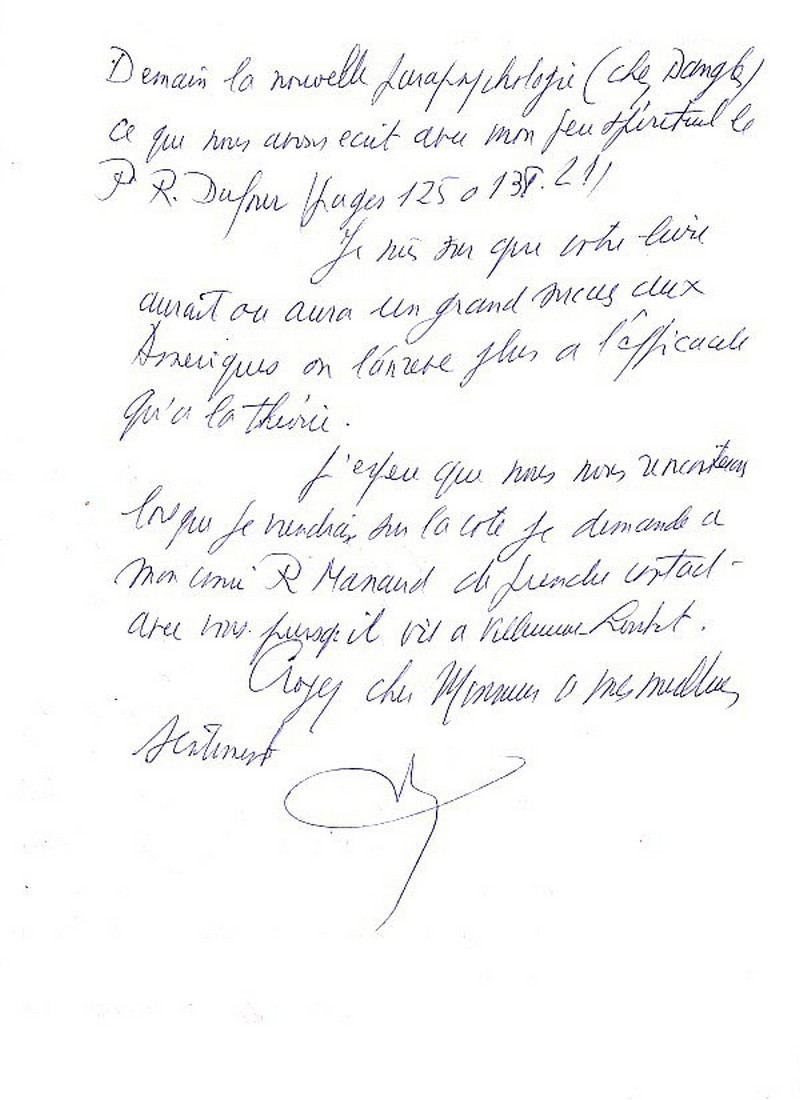 Demain la nouvelle parapsychologie (chez Dangles)
ce que nous avons ecrit avec mon feu spirituel le
P R. Dufour (pages 125 a 13
Je suis sur que votre livre
aurait ou aura un grand succes aux
Ameriques on plus a l'éfficacite
qu'a la théorie.
J'espere que nous nous rencontrerons
lorsque je viendrai sur la cote je demande a
mon ami R Manaud de prendre contact -
avec vous puisqu'il vit a Villeneuve-Loubet.
Croyez cher Monsieur a mes meilleurs
Sentiments